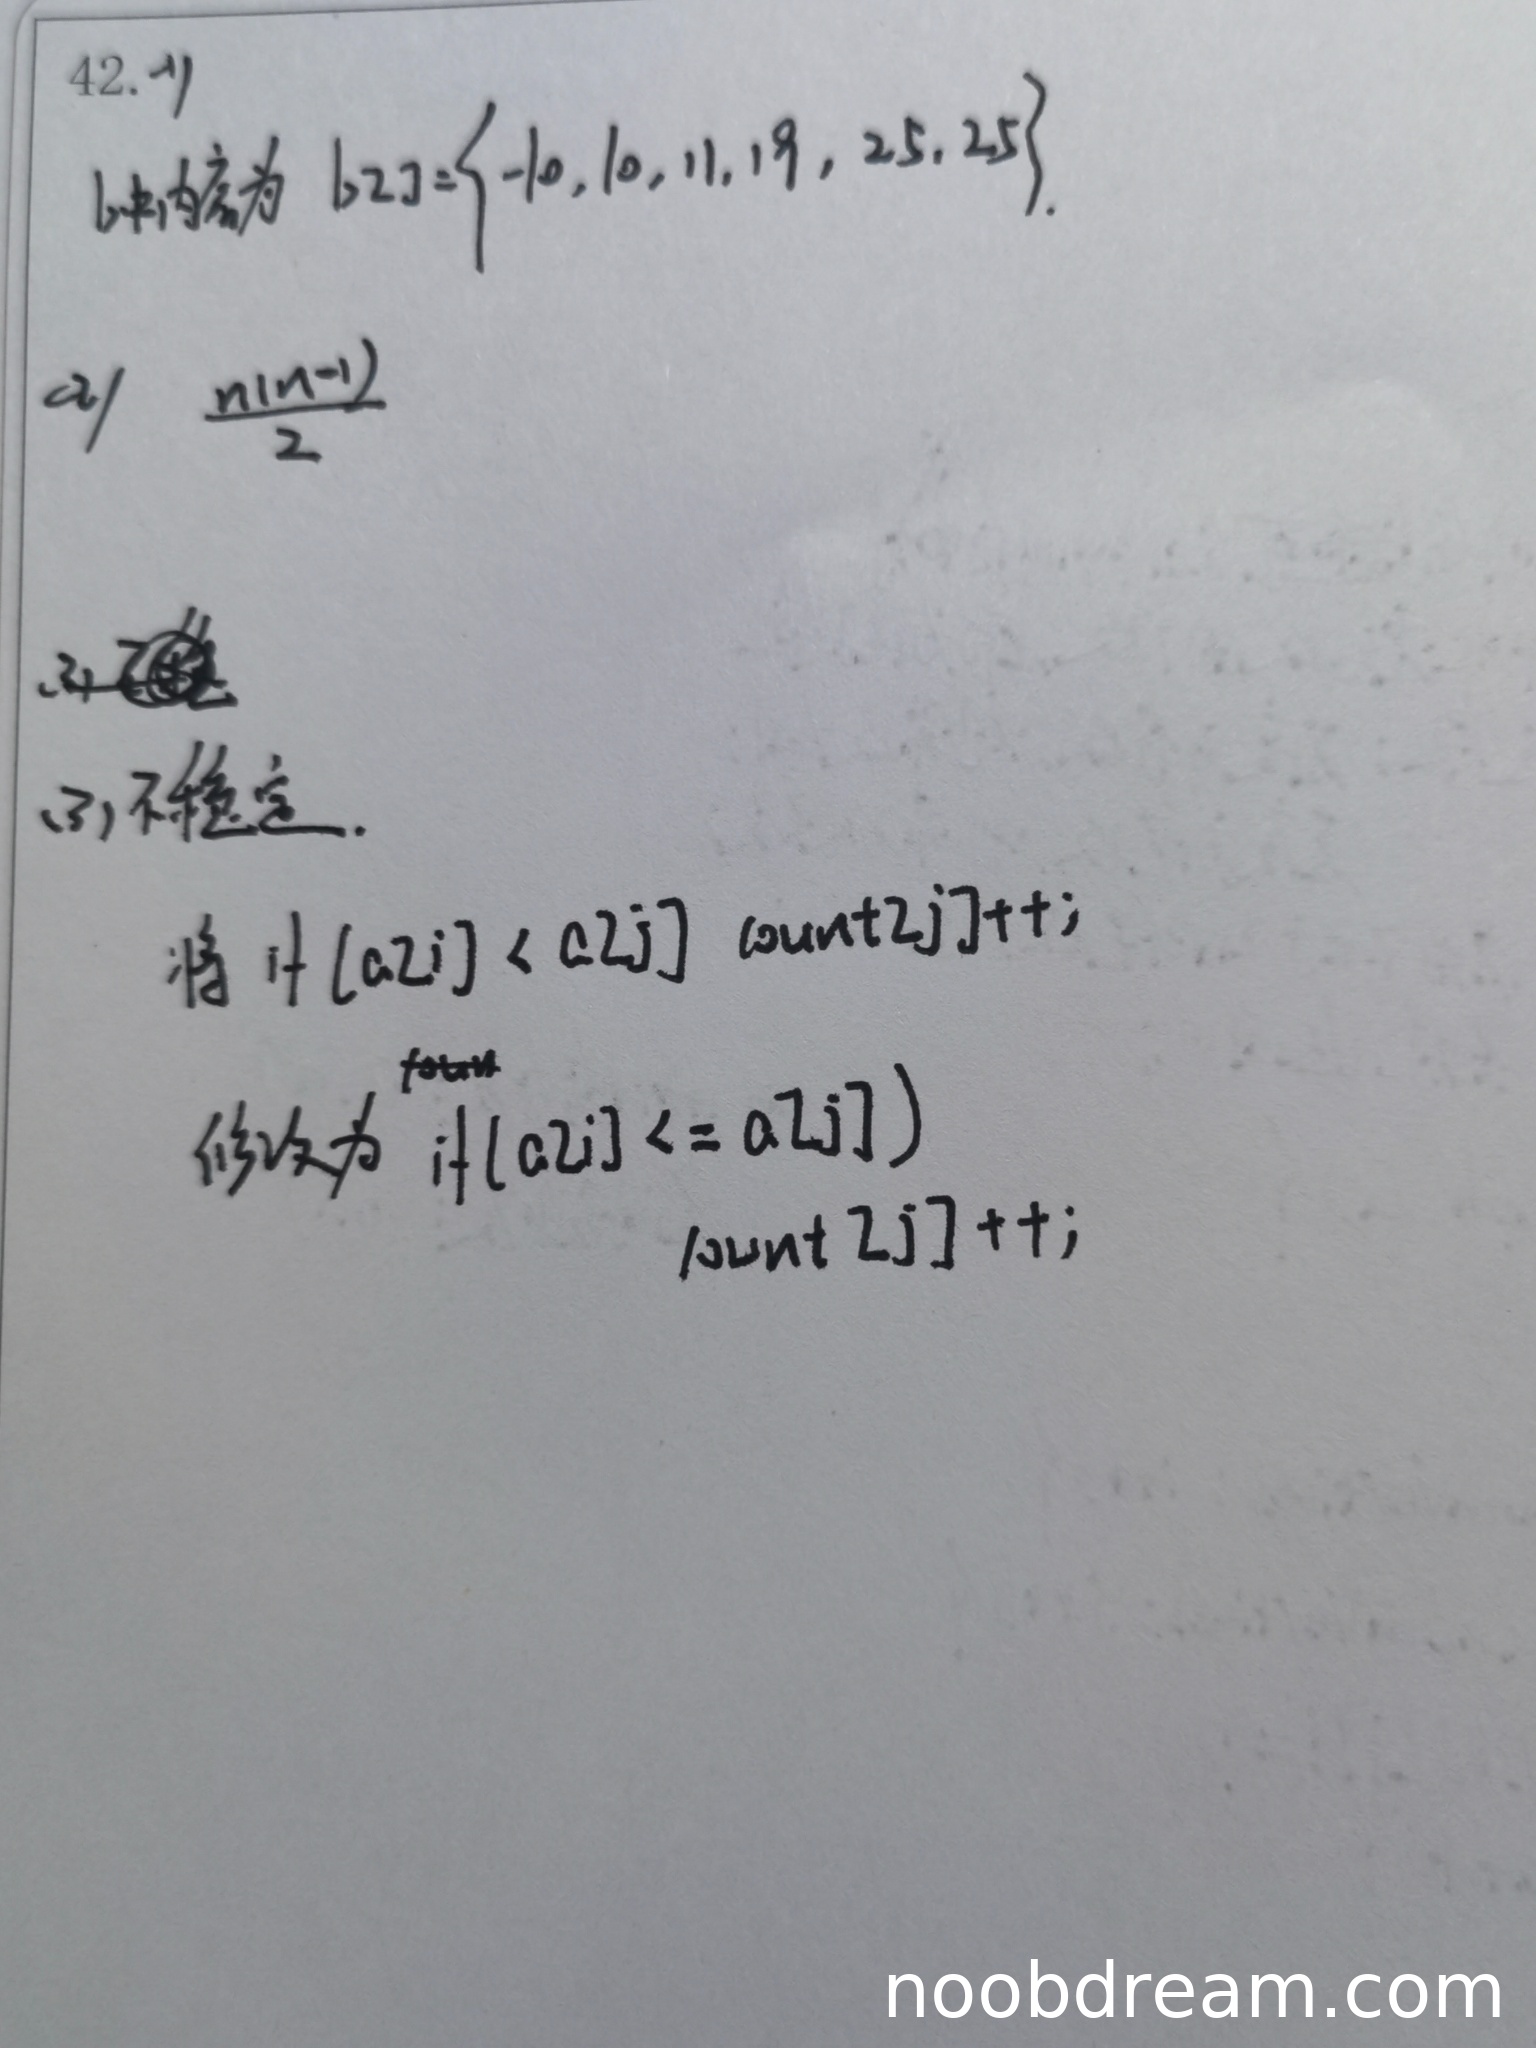 42.(1)
b中内容为 b[]={-10, 10, 11, 19, 25, 25}.
(2) n(n-1)/2
(3)
(3) 不稳定.
将 if(a[i] < a[j] count[j]++;
修改为 if(a[i] <= a[j])
count[j]++;
noobdream.com